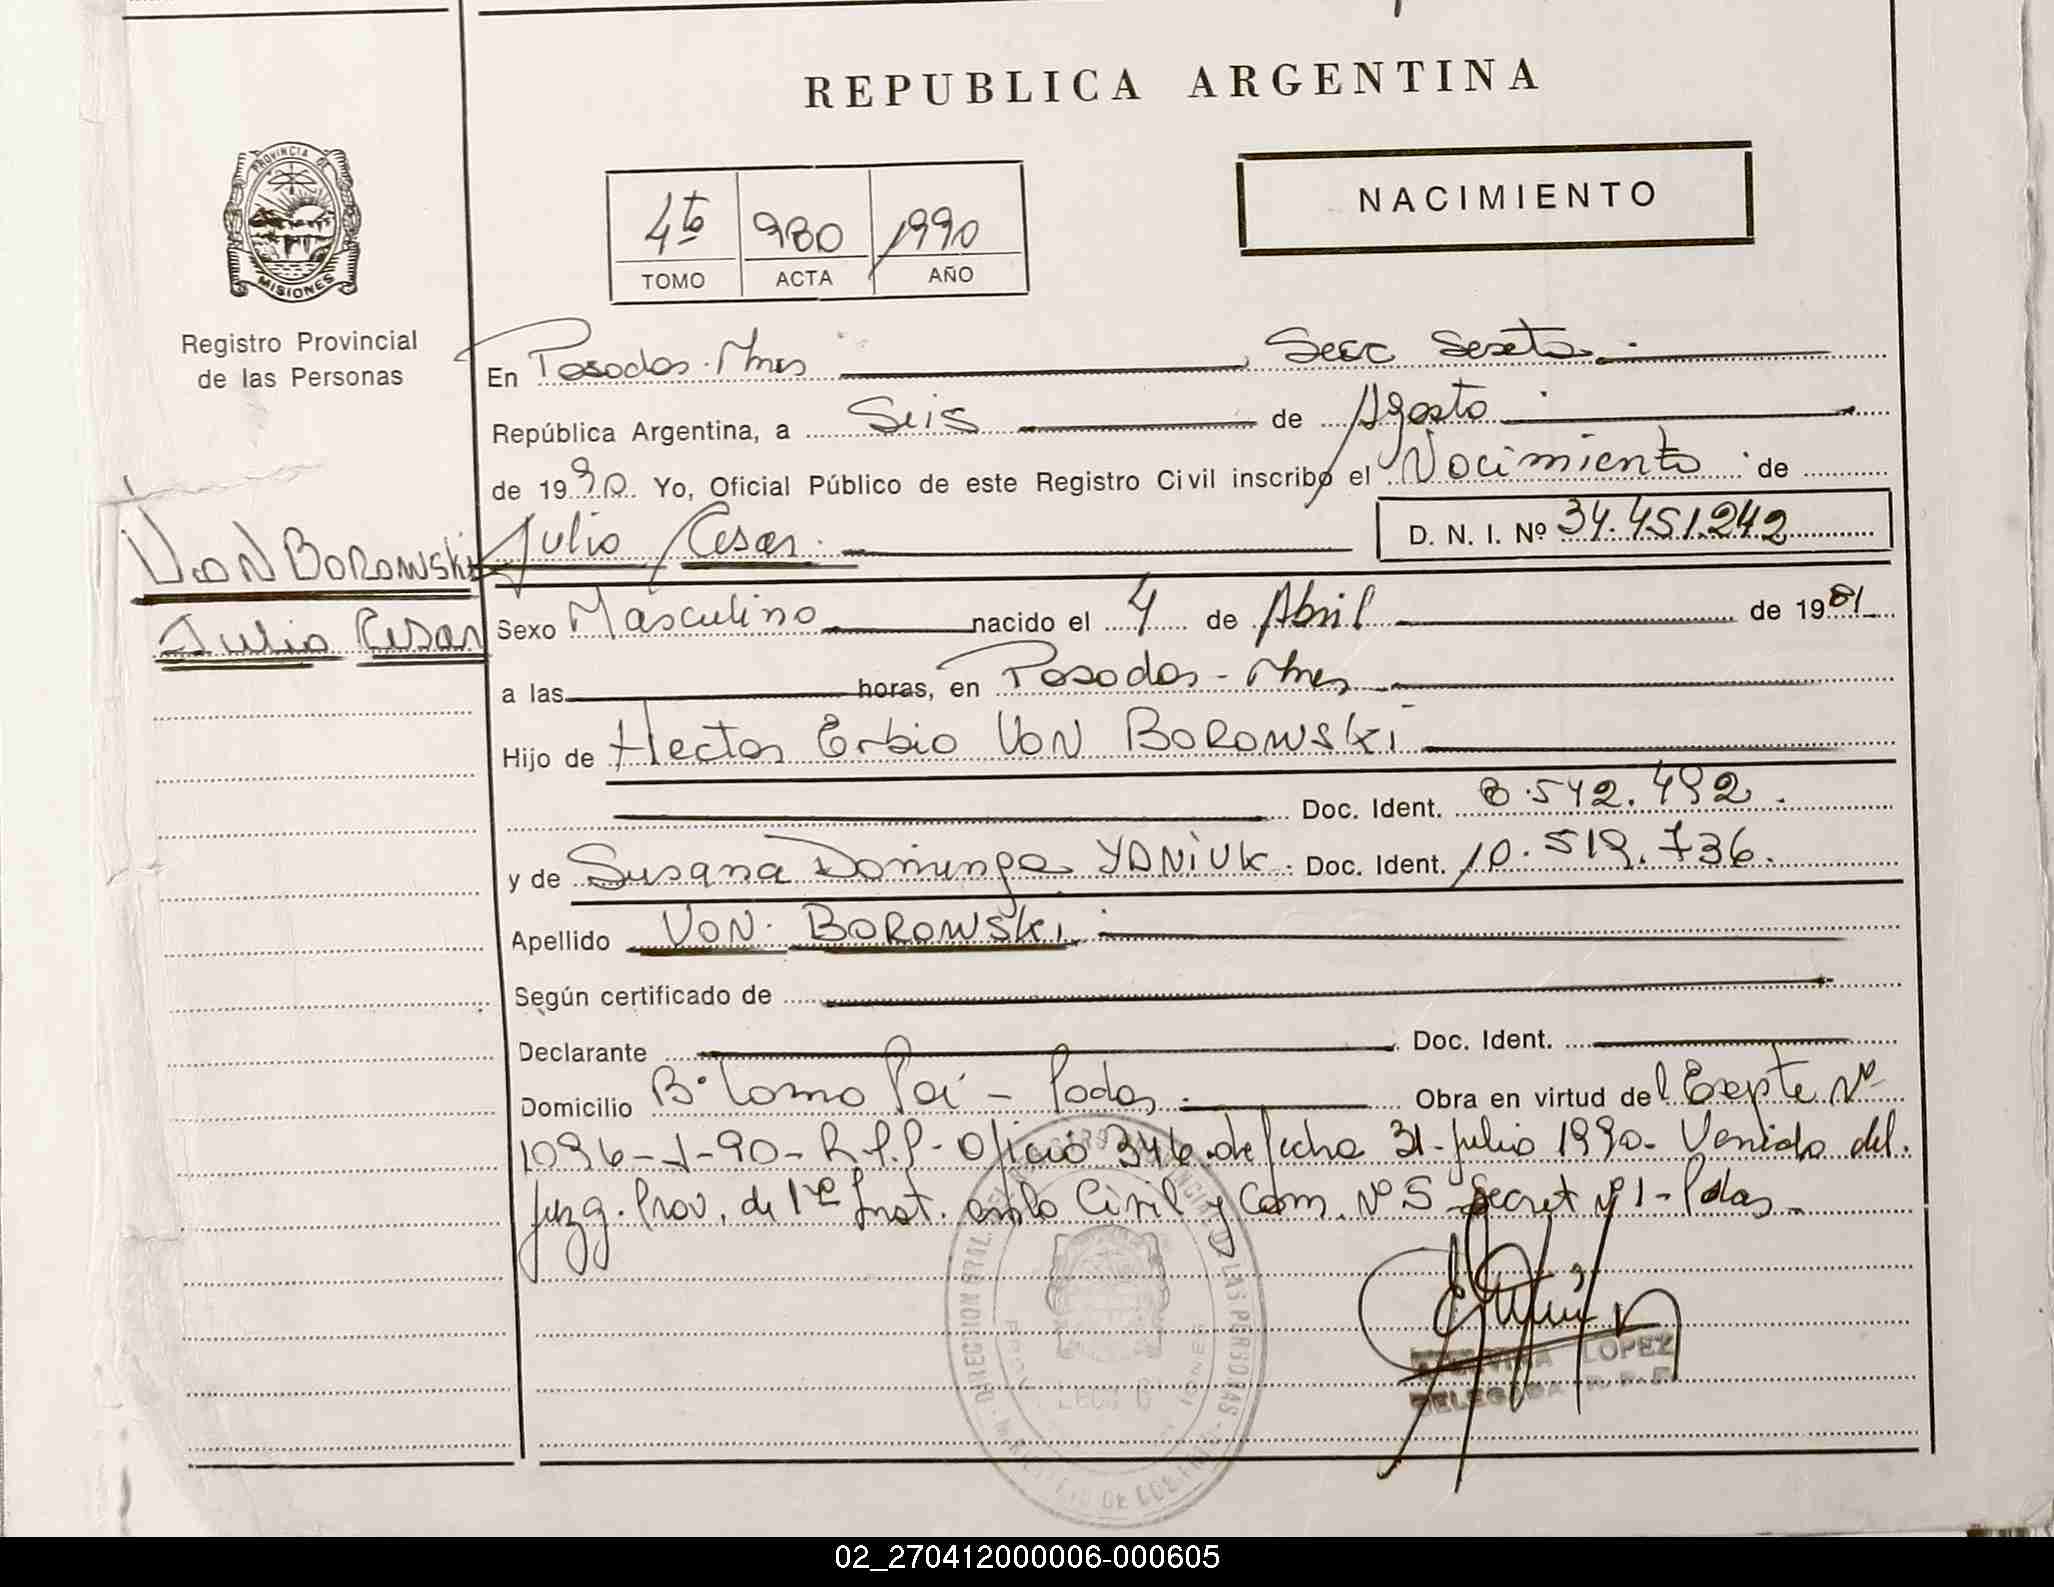 REPUBLICA ARGENTINA
PROVINCIA DE
MISIONES
Registro Provincial
de las Personas
4to 980 1990
TOMO ACTA AÑO
NACIMIENTO
En Posadas-Mnes, Secc Sexta
República Argentina, a Seis de Agosto
de 1990 Yo, Oficial Público de este Registro Civil inscribo el Nacimiento de
Julio Cesar D. N. I. Nº 34.451.242
VON BOROWSKi
Julio Cesar
Sexo Masculino nacido el 4 de Abril de 1981
a las horas, en Posadas - Mnes
Hijo de Hector Erbio VON BOROWSKi
Doc. Ident. 8.542.492.
y de Susana Dominga YANIUK. Doc. Ident. 10.519.736.
Apellido VON BOROWSKi
Según certificado de
Declarante Doc. Ident.
Domicilio Bº Doc - Podas. Obra en virtud del Expte Nº
1096-J-90-R.P.P- Oficio 346 de fecha 31-Julio 1990- Venido del
Juzg. Prov. de 1ra Inst. en lo Civil y Com. Nº 5 Secret Nº 1 - Pdas.
LOPEZ
DELEGADA R. P. P.
02_270412000006-000605